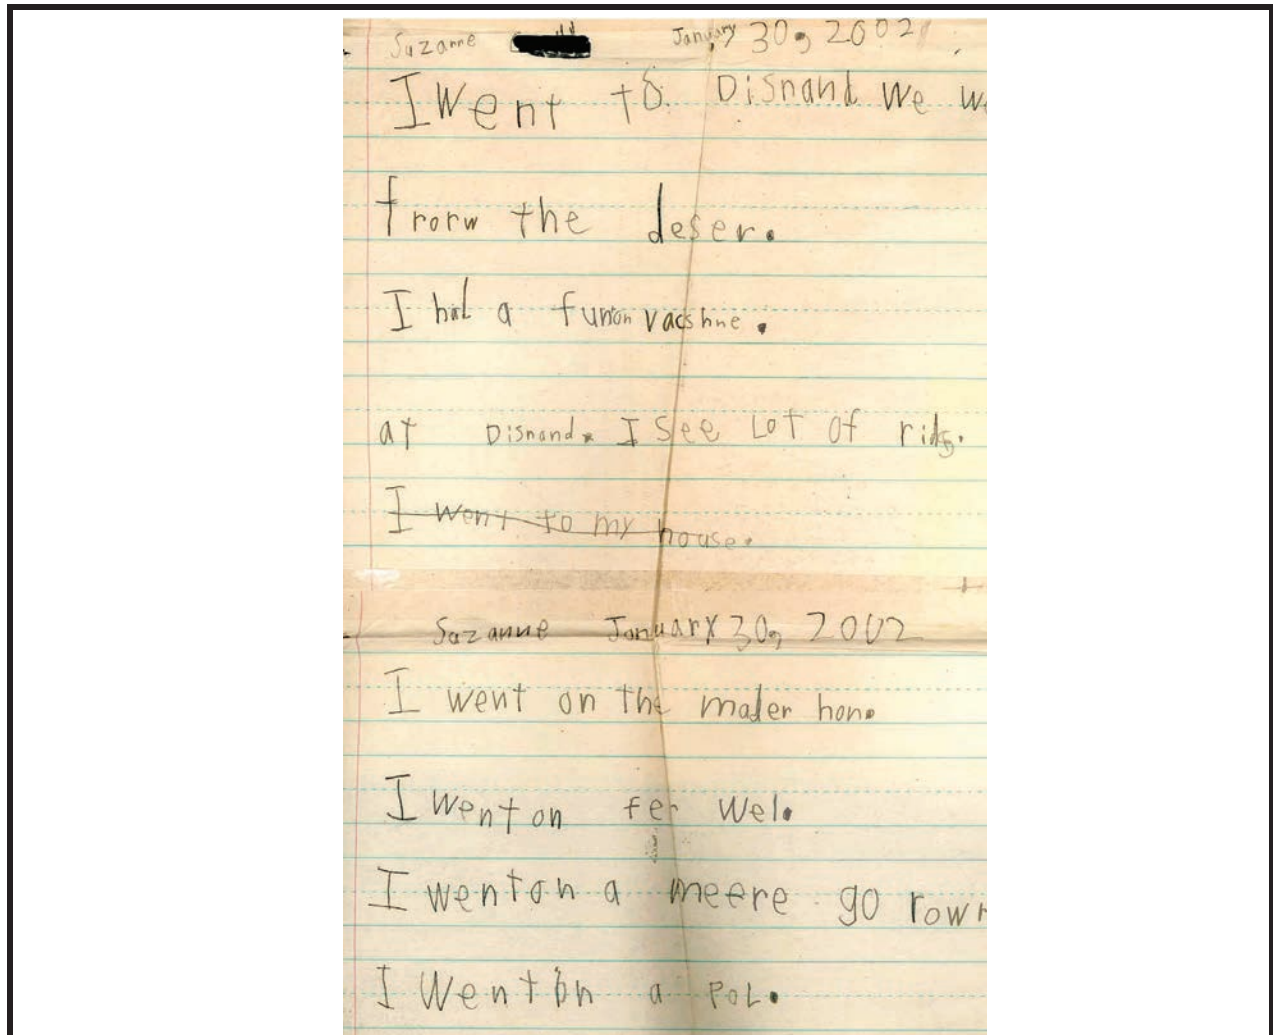 Suzanne January 30, 2002
I Went to Disnand We
frorw the deser.
I had a fun vacshne.
at Disnand. I See Lot of rids.
I went to my house.
Suzanne January 30, 2002
I went on the mader hon.
I went on fer wel.
I went on a meere go
I Went on a POL.